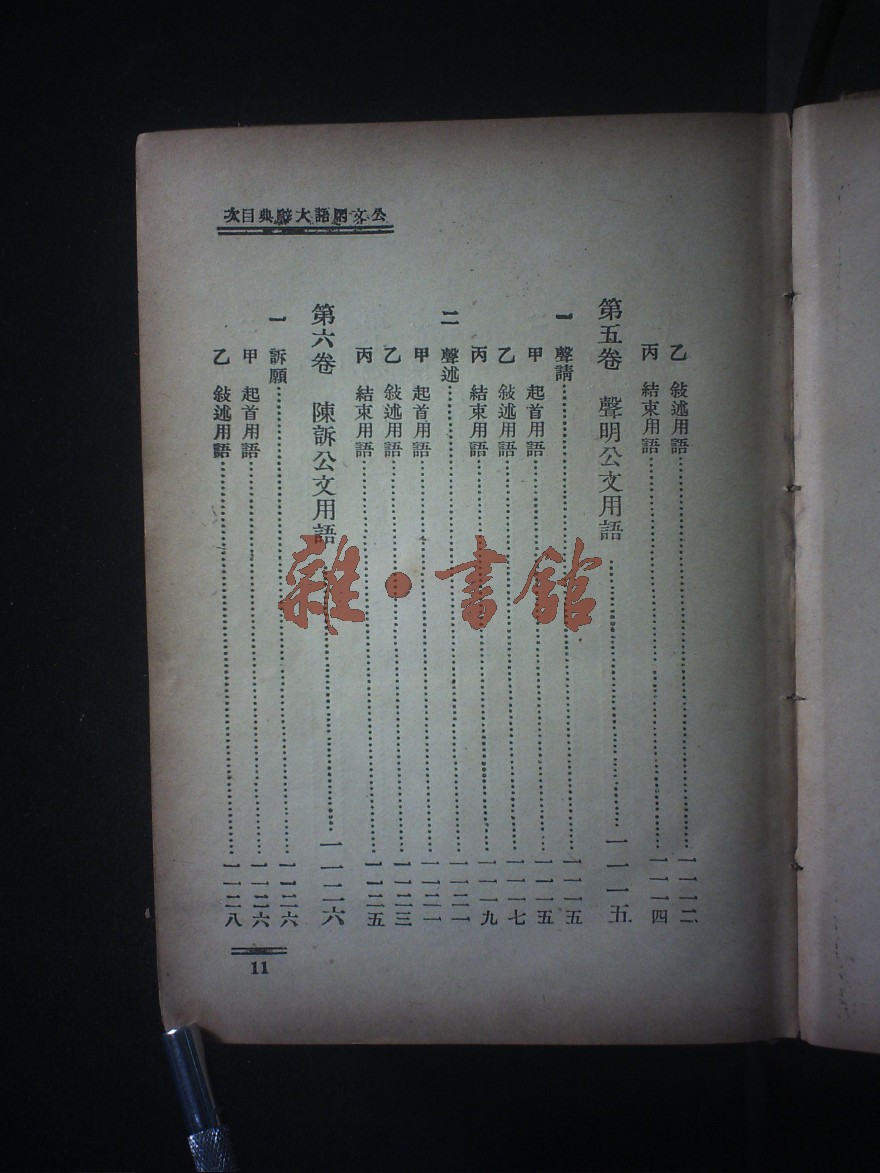 公文用語大辭典目次
乙 敍述用語 一一一二
丙 結束用語 一一一四
第五卷 聲明公文用語 一一一五
一 聲請 一一一五
甲 起首用語 一一一五
乙 敍述用語 一一一七
丙 結束用語 一一一九
二 聲述 一一二一
甲 起首用語 一一二一
乙 敍述用語 一一二三
丙 結束用語 一一二五
第六卷 陳訴公文用語 一一二六
一 訴願 一一二六
甲 起首用語 一一二六
乙 敍述用語 一一二八
11
雜·書館